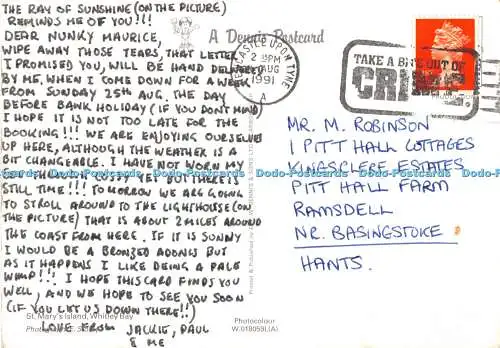 THE RAY OF SUNSHINE (ON THE PICTURE)
REMINDS ME OF YOU!!!
DEAR NUNKY MAURICE,
WIPE AWAY THOSE TEARS, THAT LETTER
I PROMISED YOU, WILL BE HAND DELIVERED
BY ME, WHEN I COME DOWN FOR A WEEK
FROM SUNDAY 25TH AUG, THE DAY
BEFORE BANK HOLIDAY (IF YOU DONT MIND)
I HOPE IT IS NOT TOO LATE FOR THE
BOOKING!!! WE ARE ENJOYING OURSELVES
UP HERE, ALTHOUGH THE WEATHER IS A
BIT CHANGEABLE. I HAVE NOT WORN MY
YET BUT THERE IS
STILL TIME!!! TOMORROW WE ARE GOING
TO STROLL AROUND TO THE LIGHTHOUSE (ON
THE PICTURE) THAT IS ABOUT 2 MILES AROUND
THE COAST FROM HERE. IF IT IS SUNNY
I WOULD BE A BRONZED ADONIS BUT
AS IT HAPPENS I LIKE BEING A PALE
WIMP!!! I HOPE THIS CARD FINDS YOU
WELL, AND WE HOPE TO SEE YOU SOON
(IF YOU LET US DOWN THERE!!)
LOVE FROM JACKIE, PAUL
& ME
St. Mary's Island, Whitley Bay
Photocolour
W.019059L(A)
A Dennis Postcard
NEWCASTLE UPON TYNE
PM
AUG
1991
A
TAKE A BITE OUT OF
CRIME.
MR. M. ROBINSON
1 PITT HALL COTTAGES
KINGSCLERE ESTATES
PITT HALL FARM
RAMSDELL
NR. BASINGSTOKE
HANTS.
Dodo-Postcards Dodo-Postcards Dodo-Postcards Dodo-Postcards